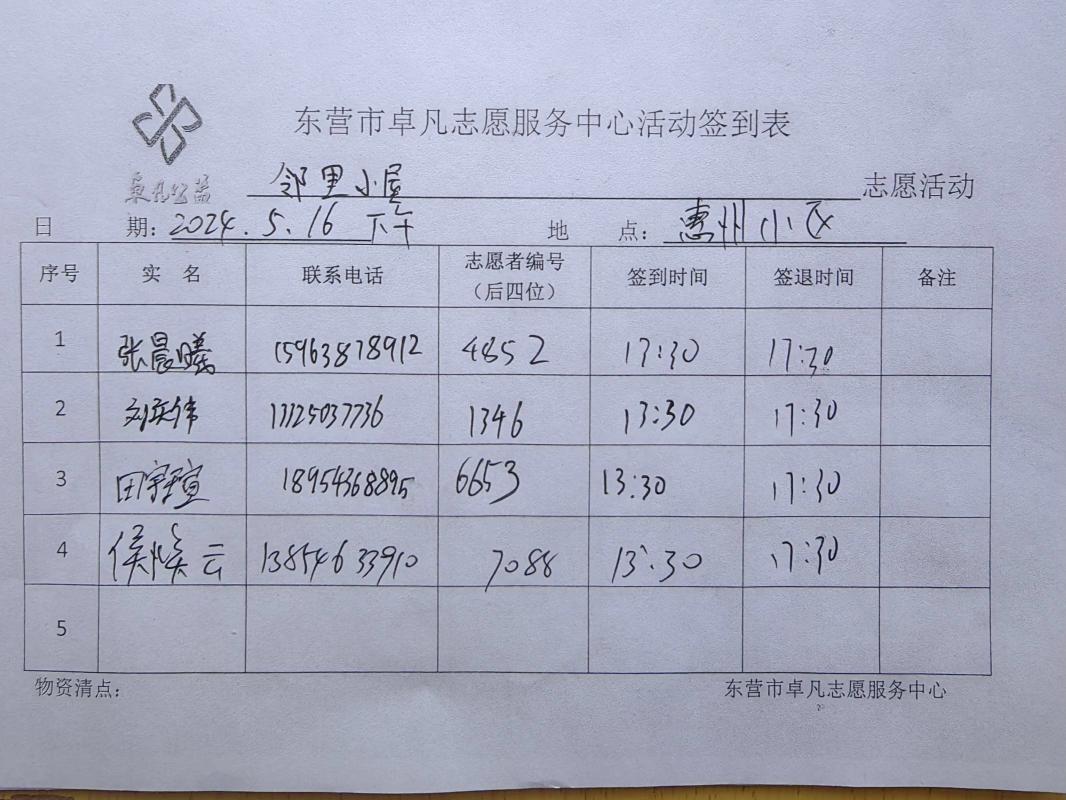 东营市卓凡志愿服务中心活动签到表
卓凡公益 邻里小屋 志愿活动
日 期：2024.5.16下午 地 点：惠州小区
序号 实 名 联系电话 志愿者编号（后四位） 签到时间 签退时间 备注
1 张晨曦 15963878912 4852 13:30 17:30
2 刘英伟 13125037736 1346 13:30 17:30
3 田宇瑄 18954368895 6653 13:30 17:30
4 侯焕云 13854633910 7088 13:30 17:30
5
物资清点： 东营市卓凡志愿服务中心